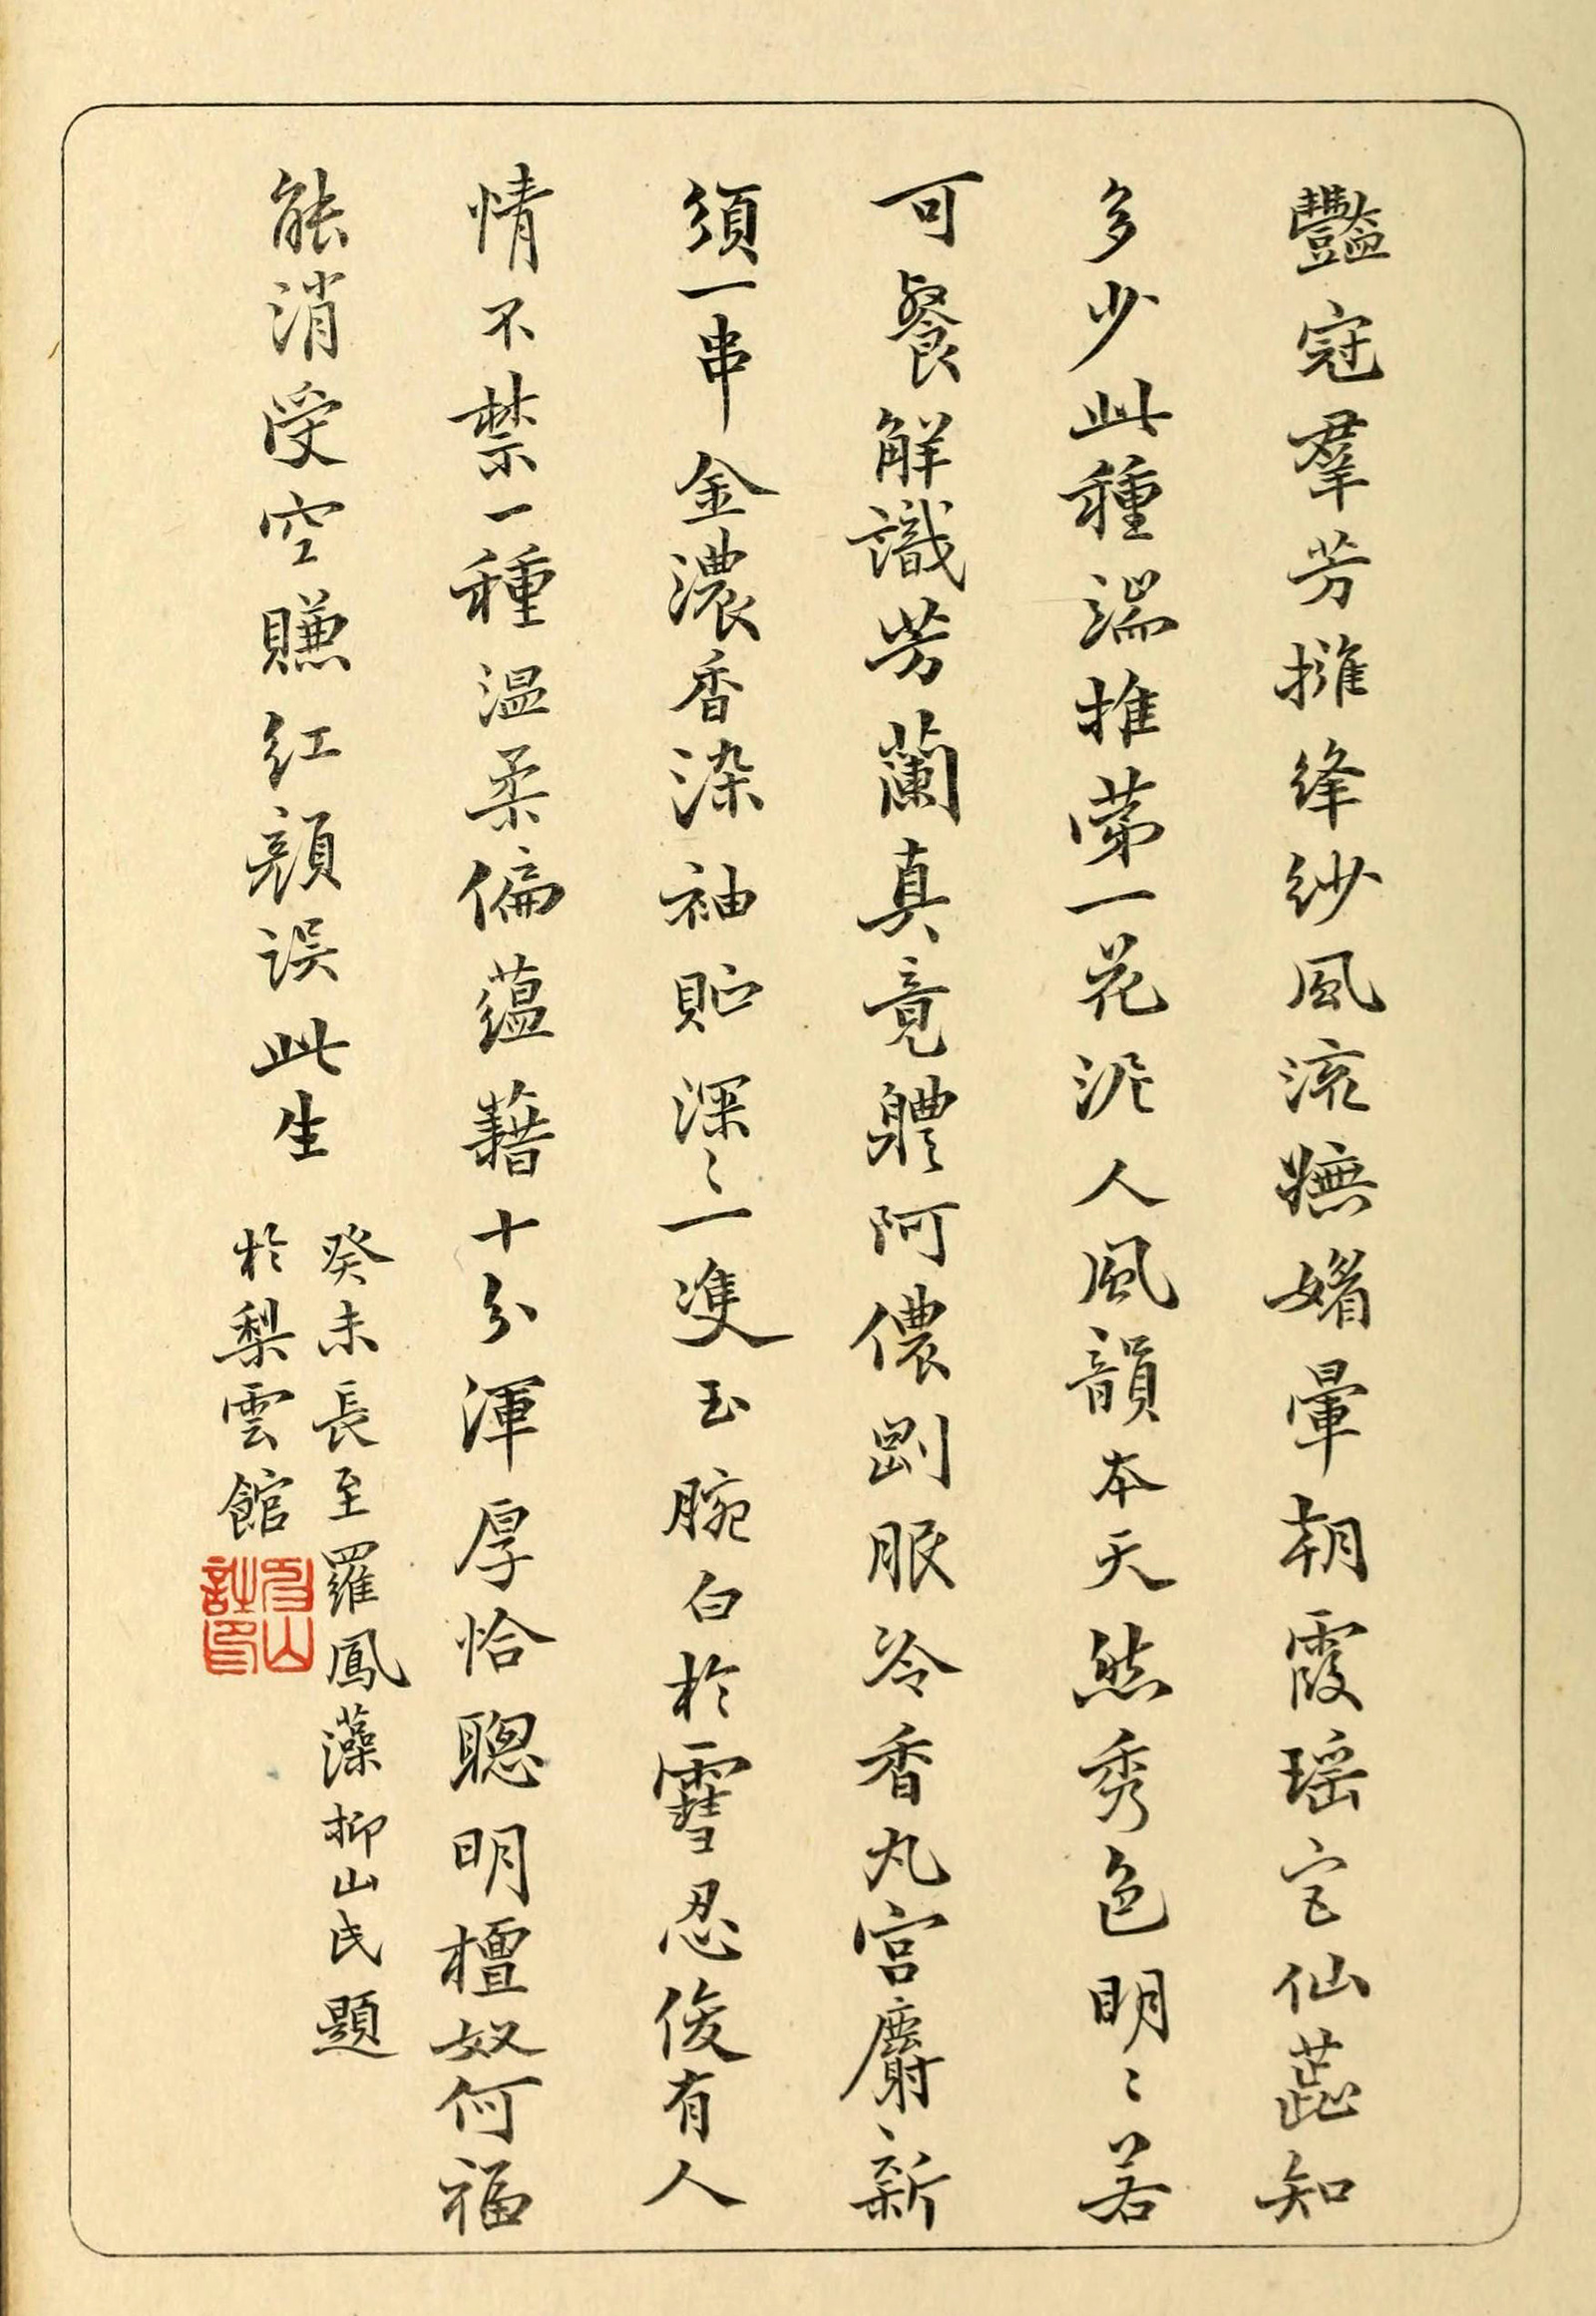 豔冠羣芳擁絳紗風流嫵媚暈朝霞瑶宫仙蕋知
多少此種端推第一花泥人風韻本天然秀色明〻若
可餐解識芳蘭真竟軆阿儂剧服冷香丸宫麝新
須一串金濃香染袖貯深〻一隻玉腕白於雪忍俊有人
情不禁一種温柔偏蕴藉十分渾厚恰聰明檀奴何福
能消受空賺紅顔误此生
癸未長至羅鳳藻抑山氏題
於梨雲館